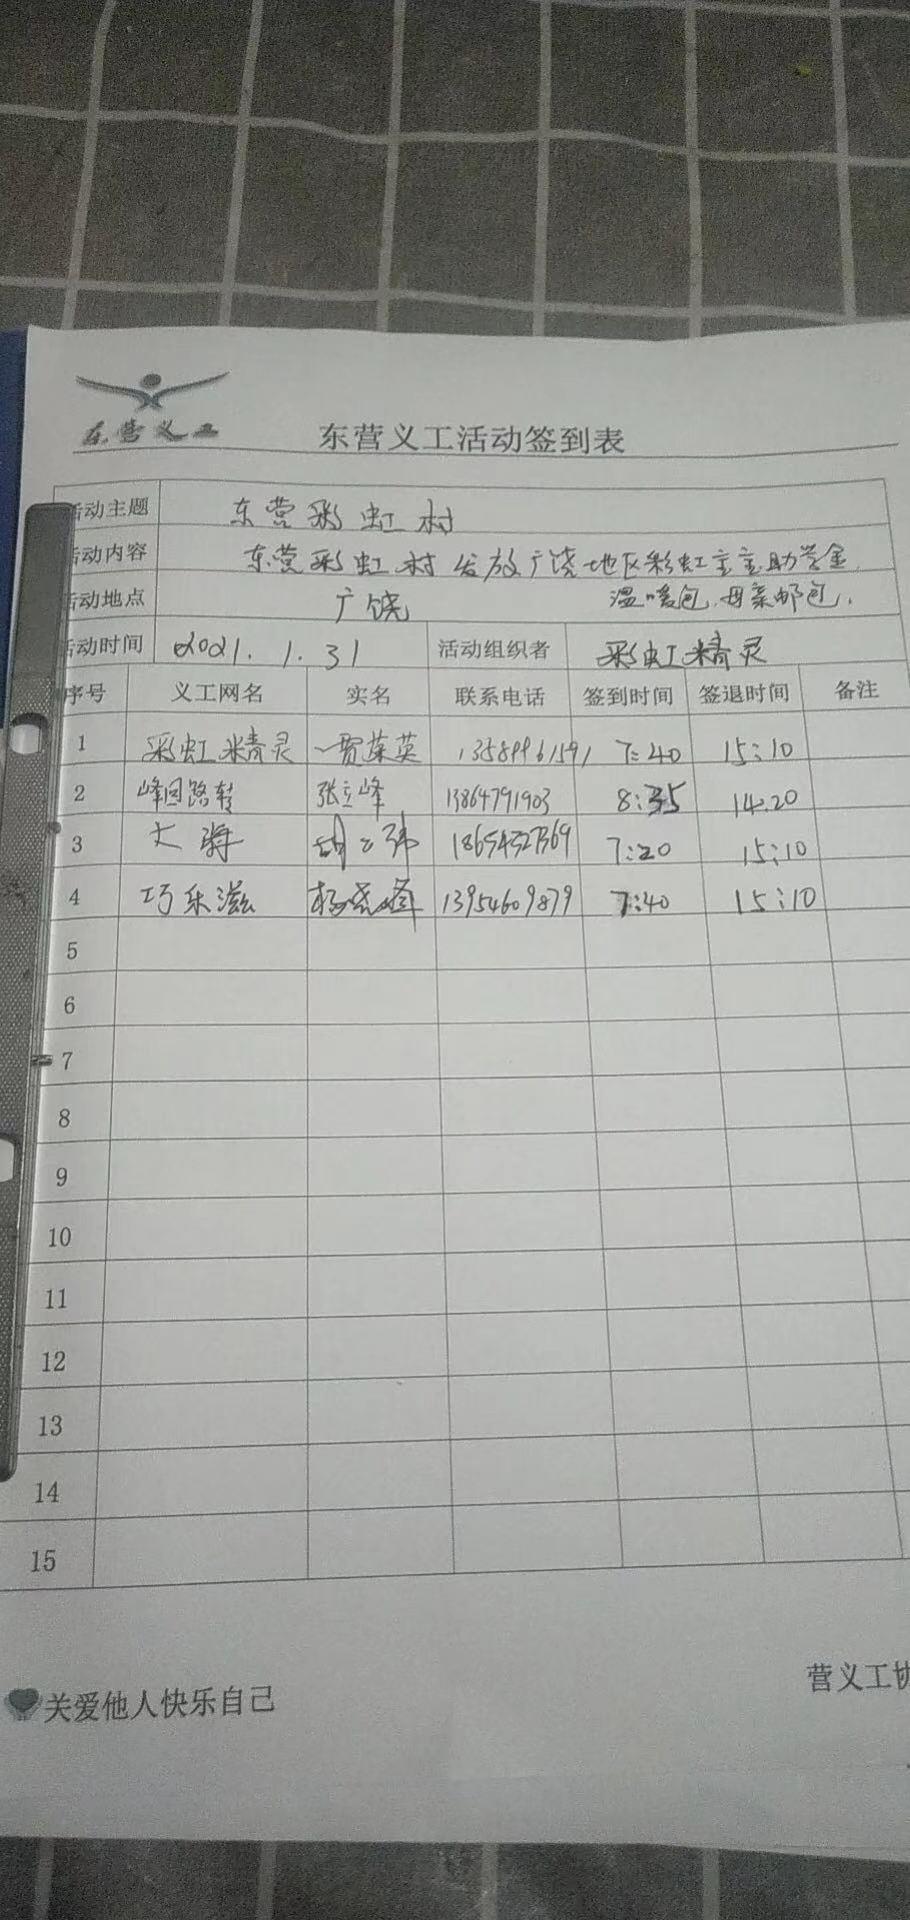 东营义工
东营义工活动签到表
活动主题 东营彩虹村
活动内容 东营彩虹村发放广饶地区彩虹宝宝助学金
温暖包.母亲邮包.
活动地点 广饶
活动时间 2021.1.31 活动组织者 彩虹精灵
序号 义工网名 实名 联系电话 签到时间 签退时间 备注
1 彩虹精灵 贾荣英 13589961591 7:40 15:10
2 峰回路转 张立峰 13864791903 8:35 14.20
3 大 7:20 15:10
4 巧乐滋 杨 13954609879 7:40 15:10
5
6
7
8
9
10
11
12
13
14
15
关爱他人快乐自己
营义工协